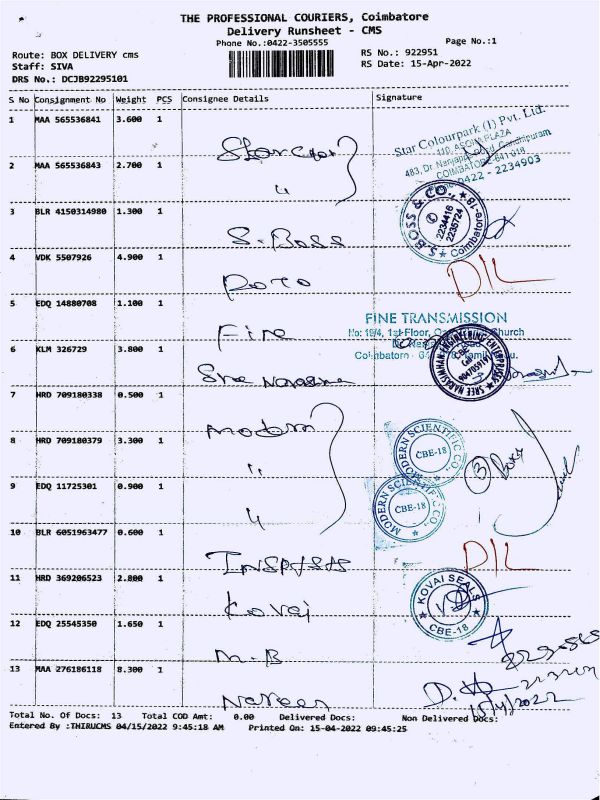 THE PROFESSIONAL COURIERS, Coimbatore
Delivery Runsheet - CMS
Phone No.:0422-3505555
Page No.:1
Route: BOX DELIVERY cms
RS No.: 922951
Staff: SIVA
RS Date: 15-Apr-2022
DRS No.: DCJB92295101
S No Consignment No Weight PCS Consignee Details Signature
1 MAA 565536841 3.600 1
Star Colourpark (I) Pvt. Ltd.
110, ASOKA PLAZA
483, Dr. Nanjappa Road, Gandhipuram
COIMBATORE-641 018
0422 - 2234903
2 MAA 565536843 2.700 1 "
3 BLR 4150314980 1.300 1 S. Boss
S.BOSS & CO., Coimbatore-18
2234416
2235724
4 VDK 5507926 4.900 1 Poto
D/L
5 EDQ 14880708 1.100 1 Fine
FINE TRANSMISSION
1st Floor, Church
Road
Coimbatore
6 KLM 326729 3.800 1 Sree Narasima
SREE NARASIMHAN ENGINEERING ENTERPRISES
7 HRD 709180338 0.500 1 Modern
MODERN SCIENTIFIC CO.
CBE-18
8 HRD 709180379 3.300 1 "
3 Box
9 EDQ 11725301 0.900 1 "
MODERN SCIENTIFIC CO.
CBE-18
10 BLR 6051963477 0.600 1
D/L
11 HRD 369206523 2.800 1 Kovai
KOVAI SEALS
CBE-18
12 EDQ 25545350 1.650 1 M-B
13 MAA 276186118 8.300 1 Naveen
15/4/2022
Total No. Of Docs: 13 Total COD Amt: 0.00 Delivered Docs: Non Delivered Docs:
Entered By :THIRUCMS 04/15/2022 9:45:18 AM Printed On: 15-04-2022 09:45:25